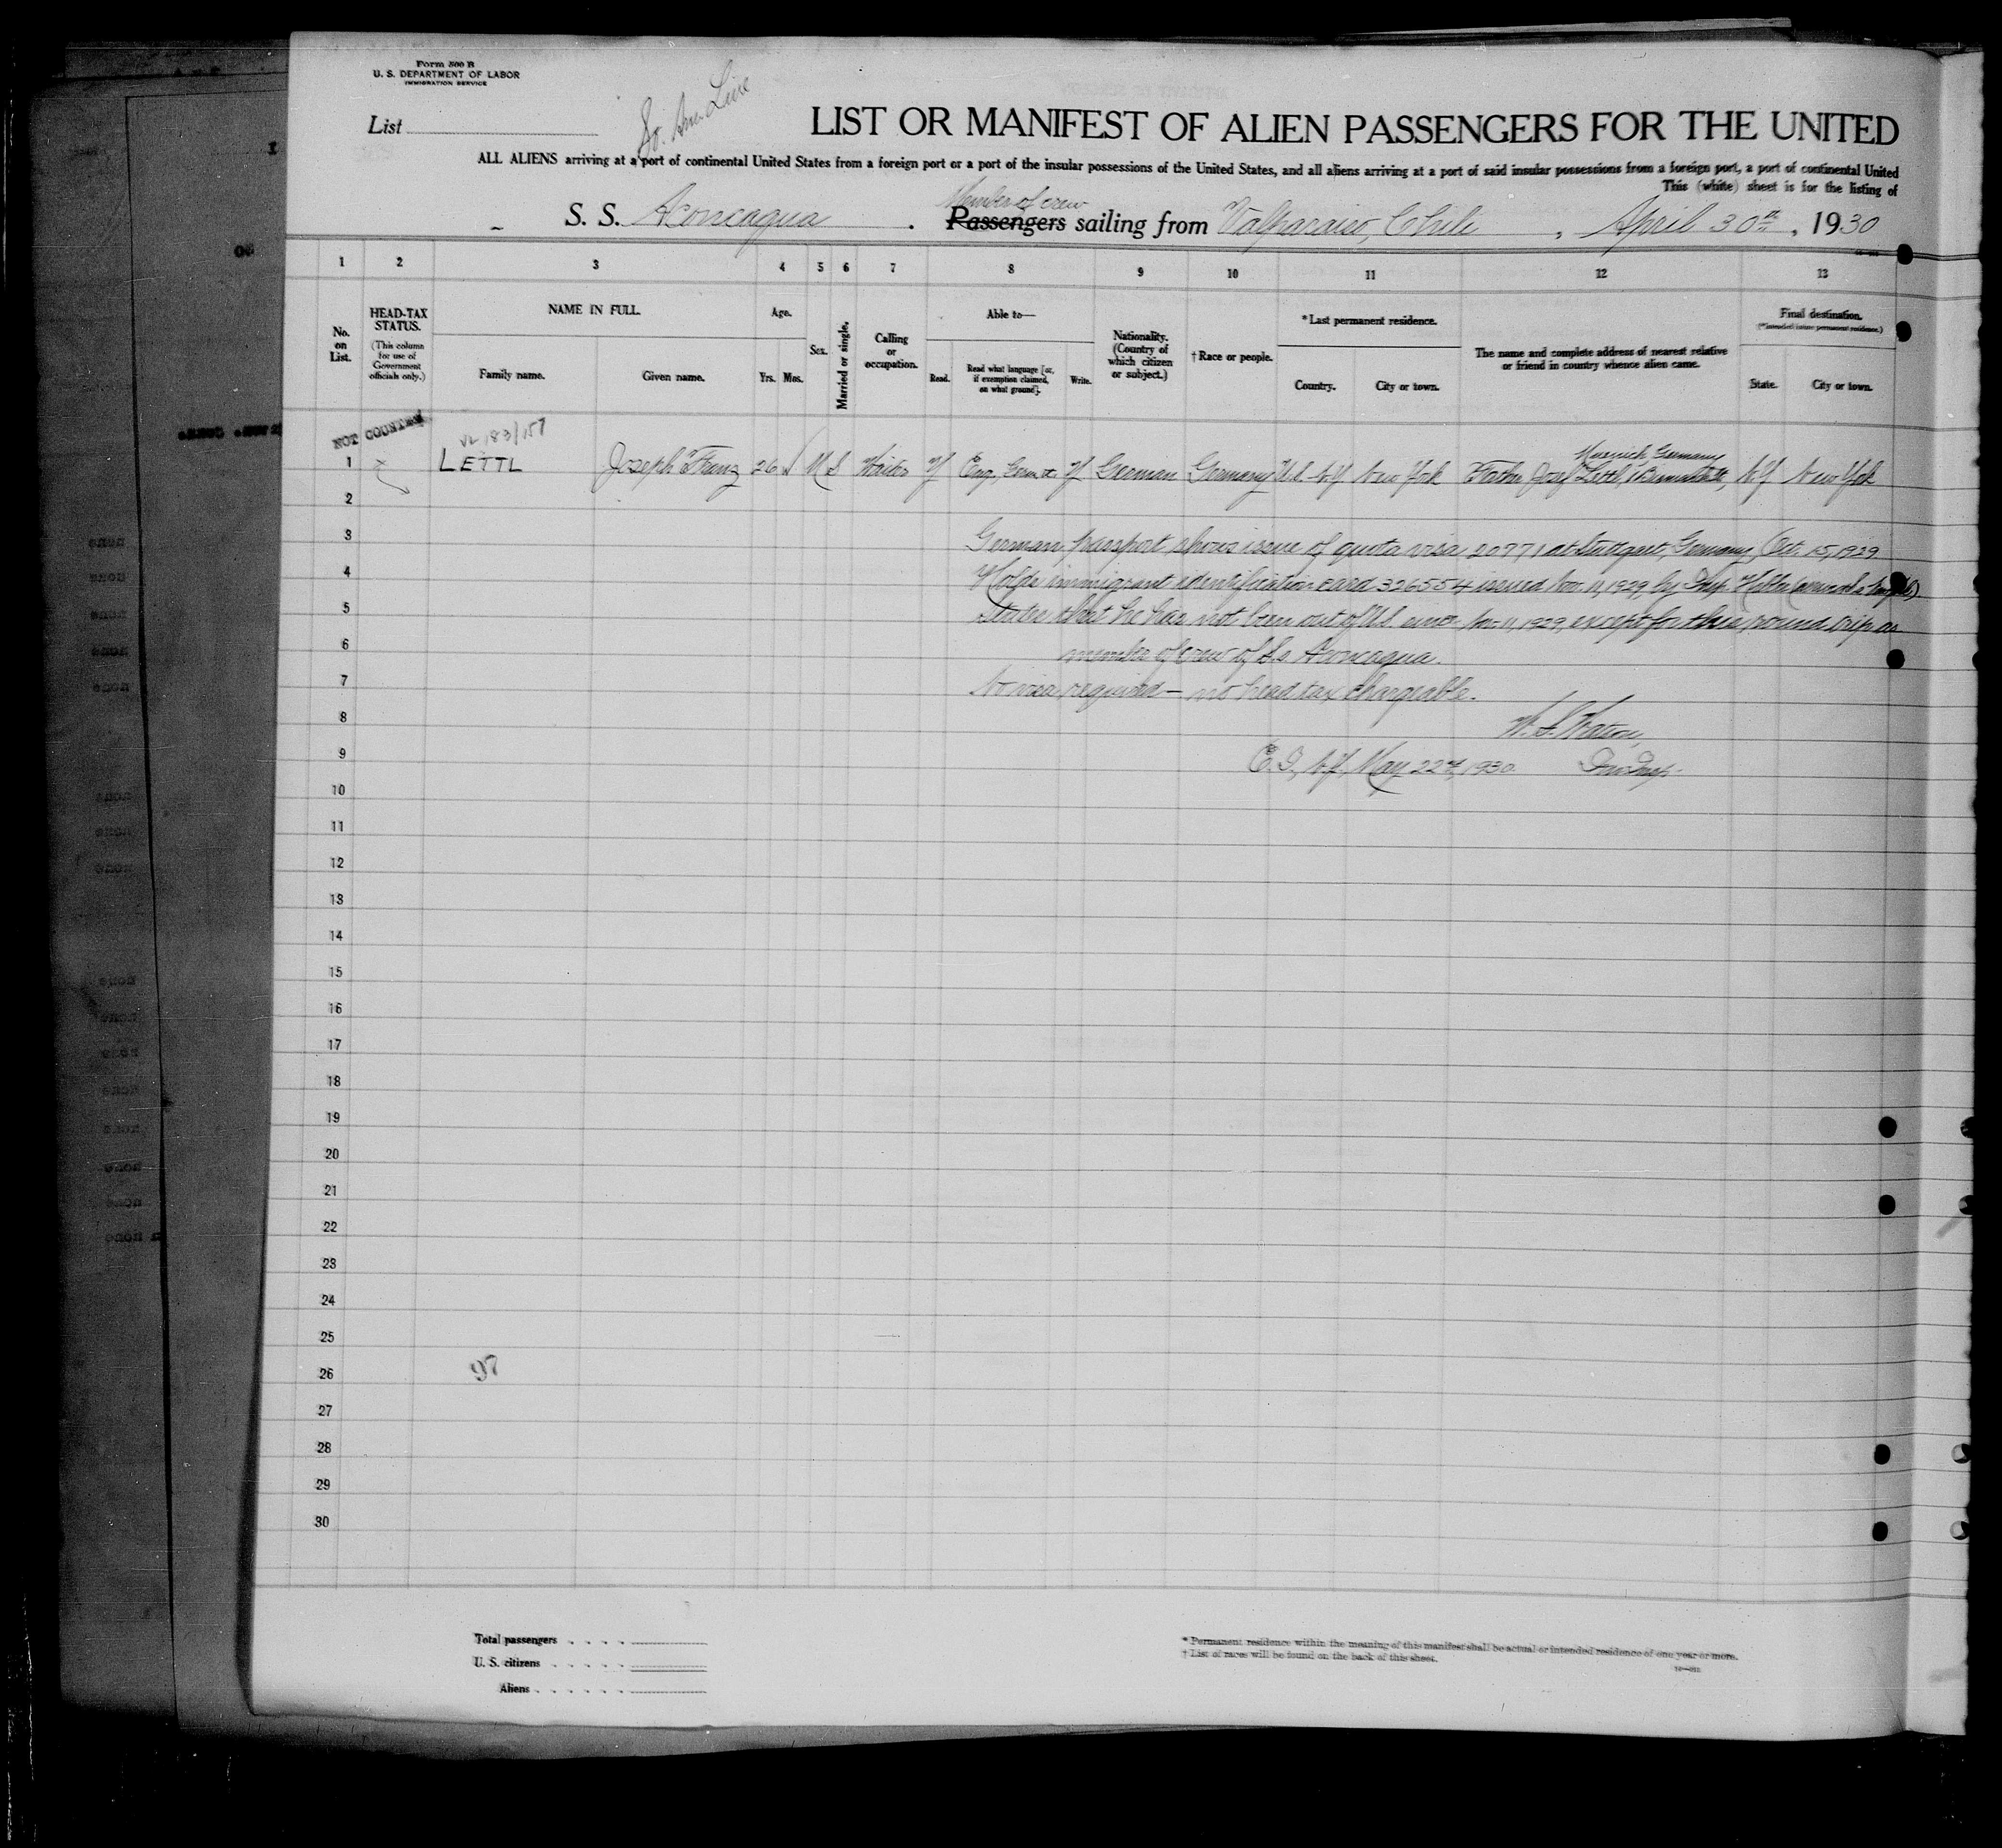 Form 500 B
U. S. DEPARTMENT OF LABOR
IMMIGRATION SERVICE
So. Am. Line
List
LIST OR MANIFEST OF ALIEN PASSENGERS FOR THE UNITED
ALL ALIENS arriving at a port of continental United States from a foreign port or a port of the insular possessions of the United States, and all aliens arriving at a port of said insular possessions from a foreign port, a port of continental United
This (white) sheet is for the listing of
Member of crew
S. S. Aconcagua . Passengers sailing from Valparaiso, Chile , April 30th , 1930
1 2 3 4 5 6 7 8 9 10 11 12 13
No. on List.
HEAD-TAX STATUS.
(This column for use of Government officials only.)
NAME IN FULL.
Family name.
Given name.
Age.
Yrs. Mos.
Sex.
Married or single.
Calling or occupation.
Able to—
Read.
Read what language [or, if exemption claimed, on what ground].
Write.
Nationality. (Country of which citizen or subject.)
† Race or people.
* Last permanent residence.
Country.
City or town.
The name and complete address of nearest relative or friend in country whence alien came.
Final destination.
(* Intended future permanent residence.)
State.
City or town.
NOT COUNTED
VL 183/157
Munich Germany
1 LETTL Joseph Franz 26 M S Waiter Y Eng, Germ Y German Germany U.S. N.Y. New York Father Josef Lettl, N.Y. New York
2
3 German passport shows issue of quota visa 20771 at Stuttgart, Germany, Oct. 15, 1929
4 Holds immigrant identification card 326554 issued Nov. 11, 1929, by Insp.
5 States that he has not been out of U.S. since Nov. 11, 1929, except for this round trip as
6 member of crew of S.S. Aconcagua.
7 No visa required — no head tax chargeable.
8 W. S. Watson,
9 E. I., N.Y., May 22nd, 1930. Imm Insp.
10
11
12
13
14
15
16
17
18
19
20
21
22
23
24
25
26 97
27
28
29
30
Total passengers
U. S. citizens
Aliens
* Permanent residence within the meaning of this manifest shall be actual or intended residence of one year or more.
† List of races will be found on the back of this sheet.